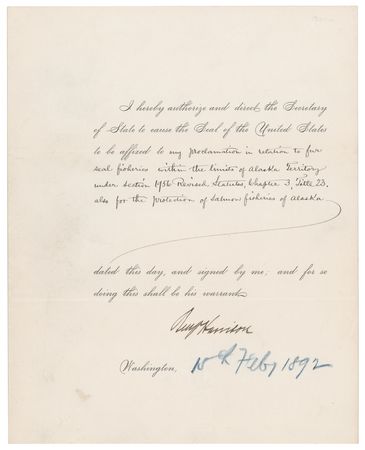 I hereby authorize and direct the Secretary
of State to cause the Seal of the United States
to be affixed to my proclamation in relation to fur
seal fisheries within the limits of Alaska Territory
under section 1956 Revised Statutes, Chapter 3, Title 23,
also for the protection of salmon fisheries of Alaska
dated this day, and signed by me; and for so
doing this shall be his warrant.
Benj Harrison
Washington, 15th Feby 1892